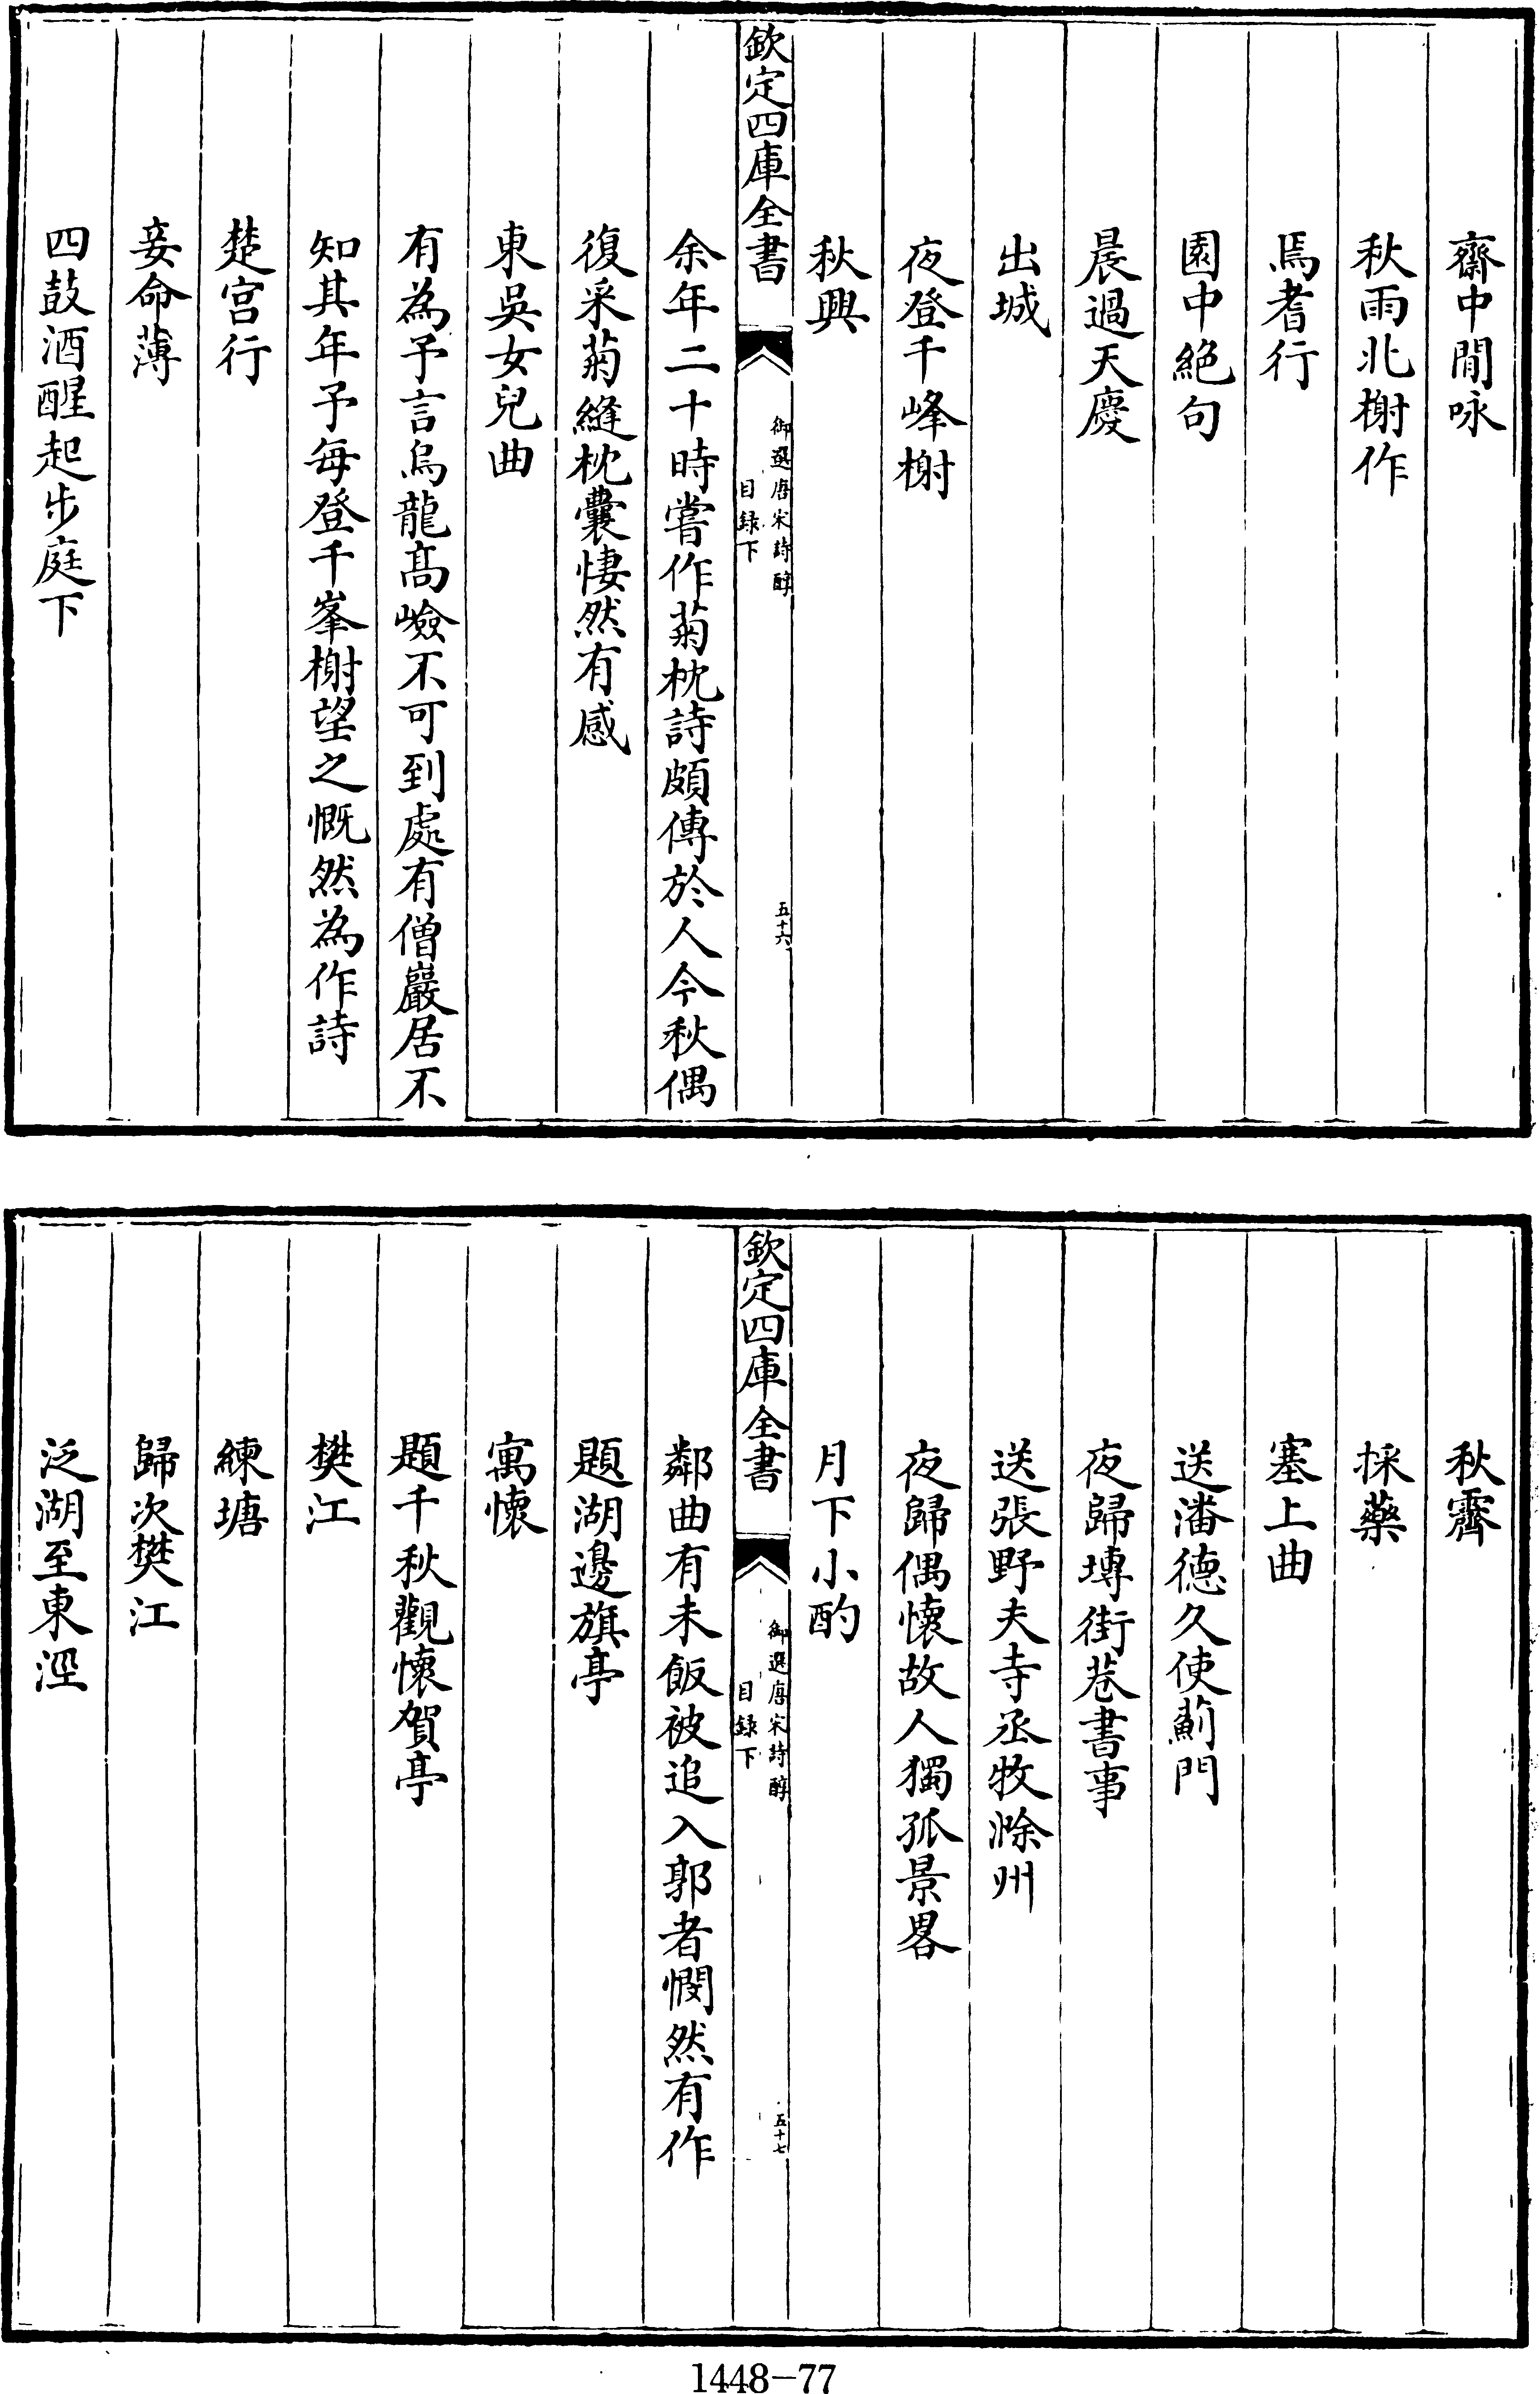 齋中閒咏
秋雨北榭作
焉耆行
園中絶句
晨過天慶
出城
夜登千峰榭
秋興
欽定四庫全書
御選唐宋詩醇
目録下
五十六
余年二十時嘗作菊枕詩頗傳於人今秋偶
復采菊縫枕囊悽然有感
東吳女兒曲
有為予言烏龍髙嶮不可到處有僧巖居不
知其年予每登千峯榭望之慨然為作詩
楚宫行
妾命薄
四鼓酒醒起步庭下
秋霽
採藥
塞上曲
送潘德久使薊門
夜歸塼街巷書事
送張野夫寺丞牧滁州
夜歸偶懷故人獨孤景畧
月下小酌
欽定四庫全書
御選唐宋詩醇
目録下
五十七
鄰曲有未飯被追入郭者憫然有作
題湖邊旗亭
寓懷
題千秋觀懷賀亭
樊江
練塘
歸次樊江
泛湖至東涇
1448-77